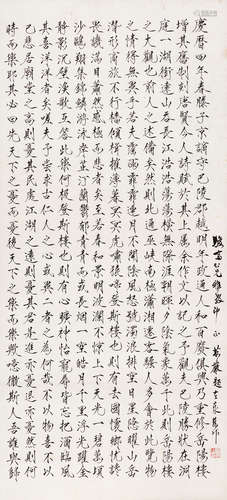 慶曆四年春滕子京謫守巴陵郡越明年政通人和百廢俱興乃重修岳陽樓
增其舊制刻唐賢今人詩賦於其上屬余作文以記之予觀夫巴陵勝狀在洞
庭一湖銜遠山吞長江浩浩蕩蕩橫無際涯朝暉夕陰氣象萬千此則岳陽樓
之大觀也前人之述備矣然則北通巫峽南極瀟湘遷客騷人多會於此覽物
之情得無異乎若夫霪雨霏霏連月不開陰風怒號濁浪排空日星隱耀山岳
潛形商旅不行檣傾楫摧薄暮冥冥虎嘯猿啼登斯樓也則有去國懷鄉憂讒
畏譏滿目蕭然感極而悲者矣至若春和景明波瀾不驚上下天光一碧萬頃
沙鷗翔集錦鱗游泳岸芷汀蘭郁郁青青而或長煙一空皓月千里浮光躍金
靜影沉璧漁歌互答此樂何極登斯樓也則有心曠神怡寵辱皆忘把酒臨風
其喜洋洋者矣嗟夫予嘗求古仁人之心或異二者之為何哉不以物喜不以
己悲居廟堂之高則憂其民處江湖之遠則憂其君是進亦憂退亦憂然則何
時而樂耶其必曰先天下之憂而憂後天下之樂而樂歟噫微斯人吾誰與歸
仁兄雅鑒 正